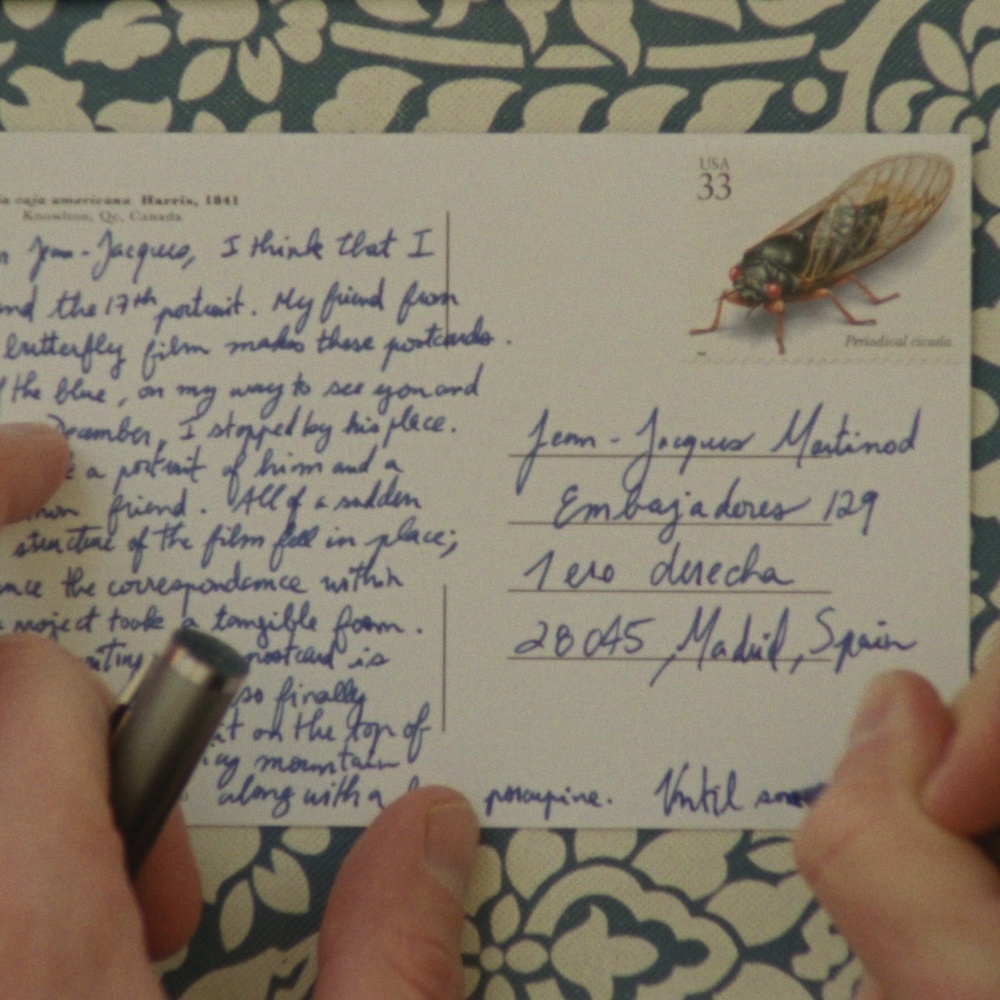 caja americana Harris, 1841
Knowlton, Qc, Canada
USA
33
Periodical cicada
Jean-Jacques, I think that I
the 17th portrait. My friend from
butterfly film makes these postcards.
the blue, on my way to see you and
December, I stopped by his place.
a portrait of him and a
friend. All of a sudden
structure of the film fell in place;
the correspondance within
project took a tangible form.
postcard is
so finally
on the top of
mountain
along with a
porcupine. Until
Jean-Jacques Martinod
Embajadores 129
1ero derecha
28045, Madrid, Spain